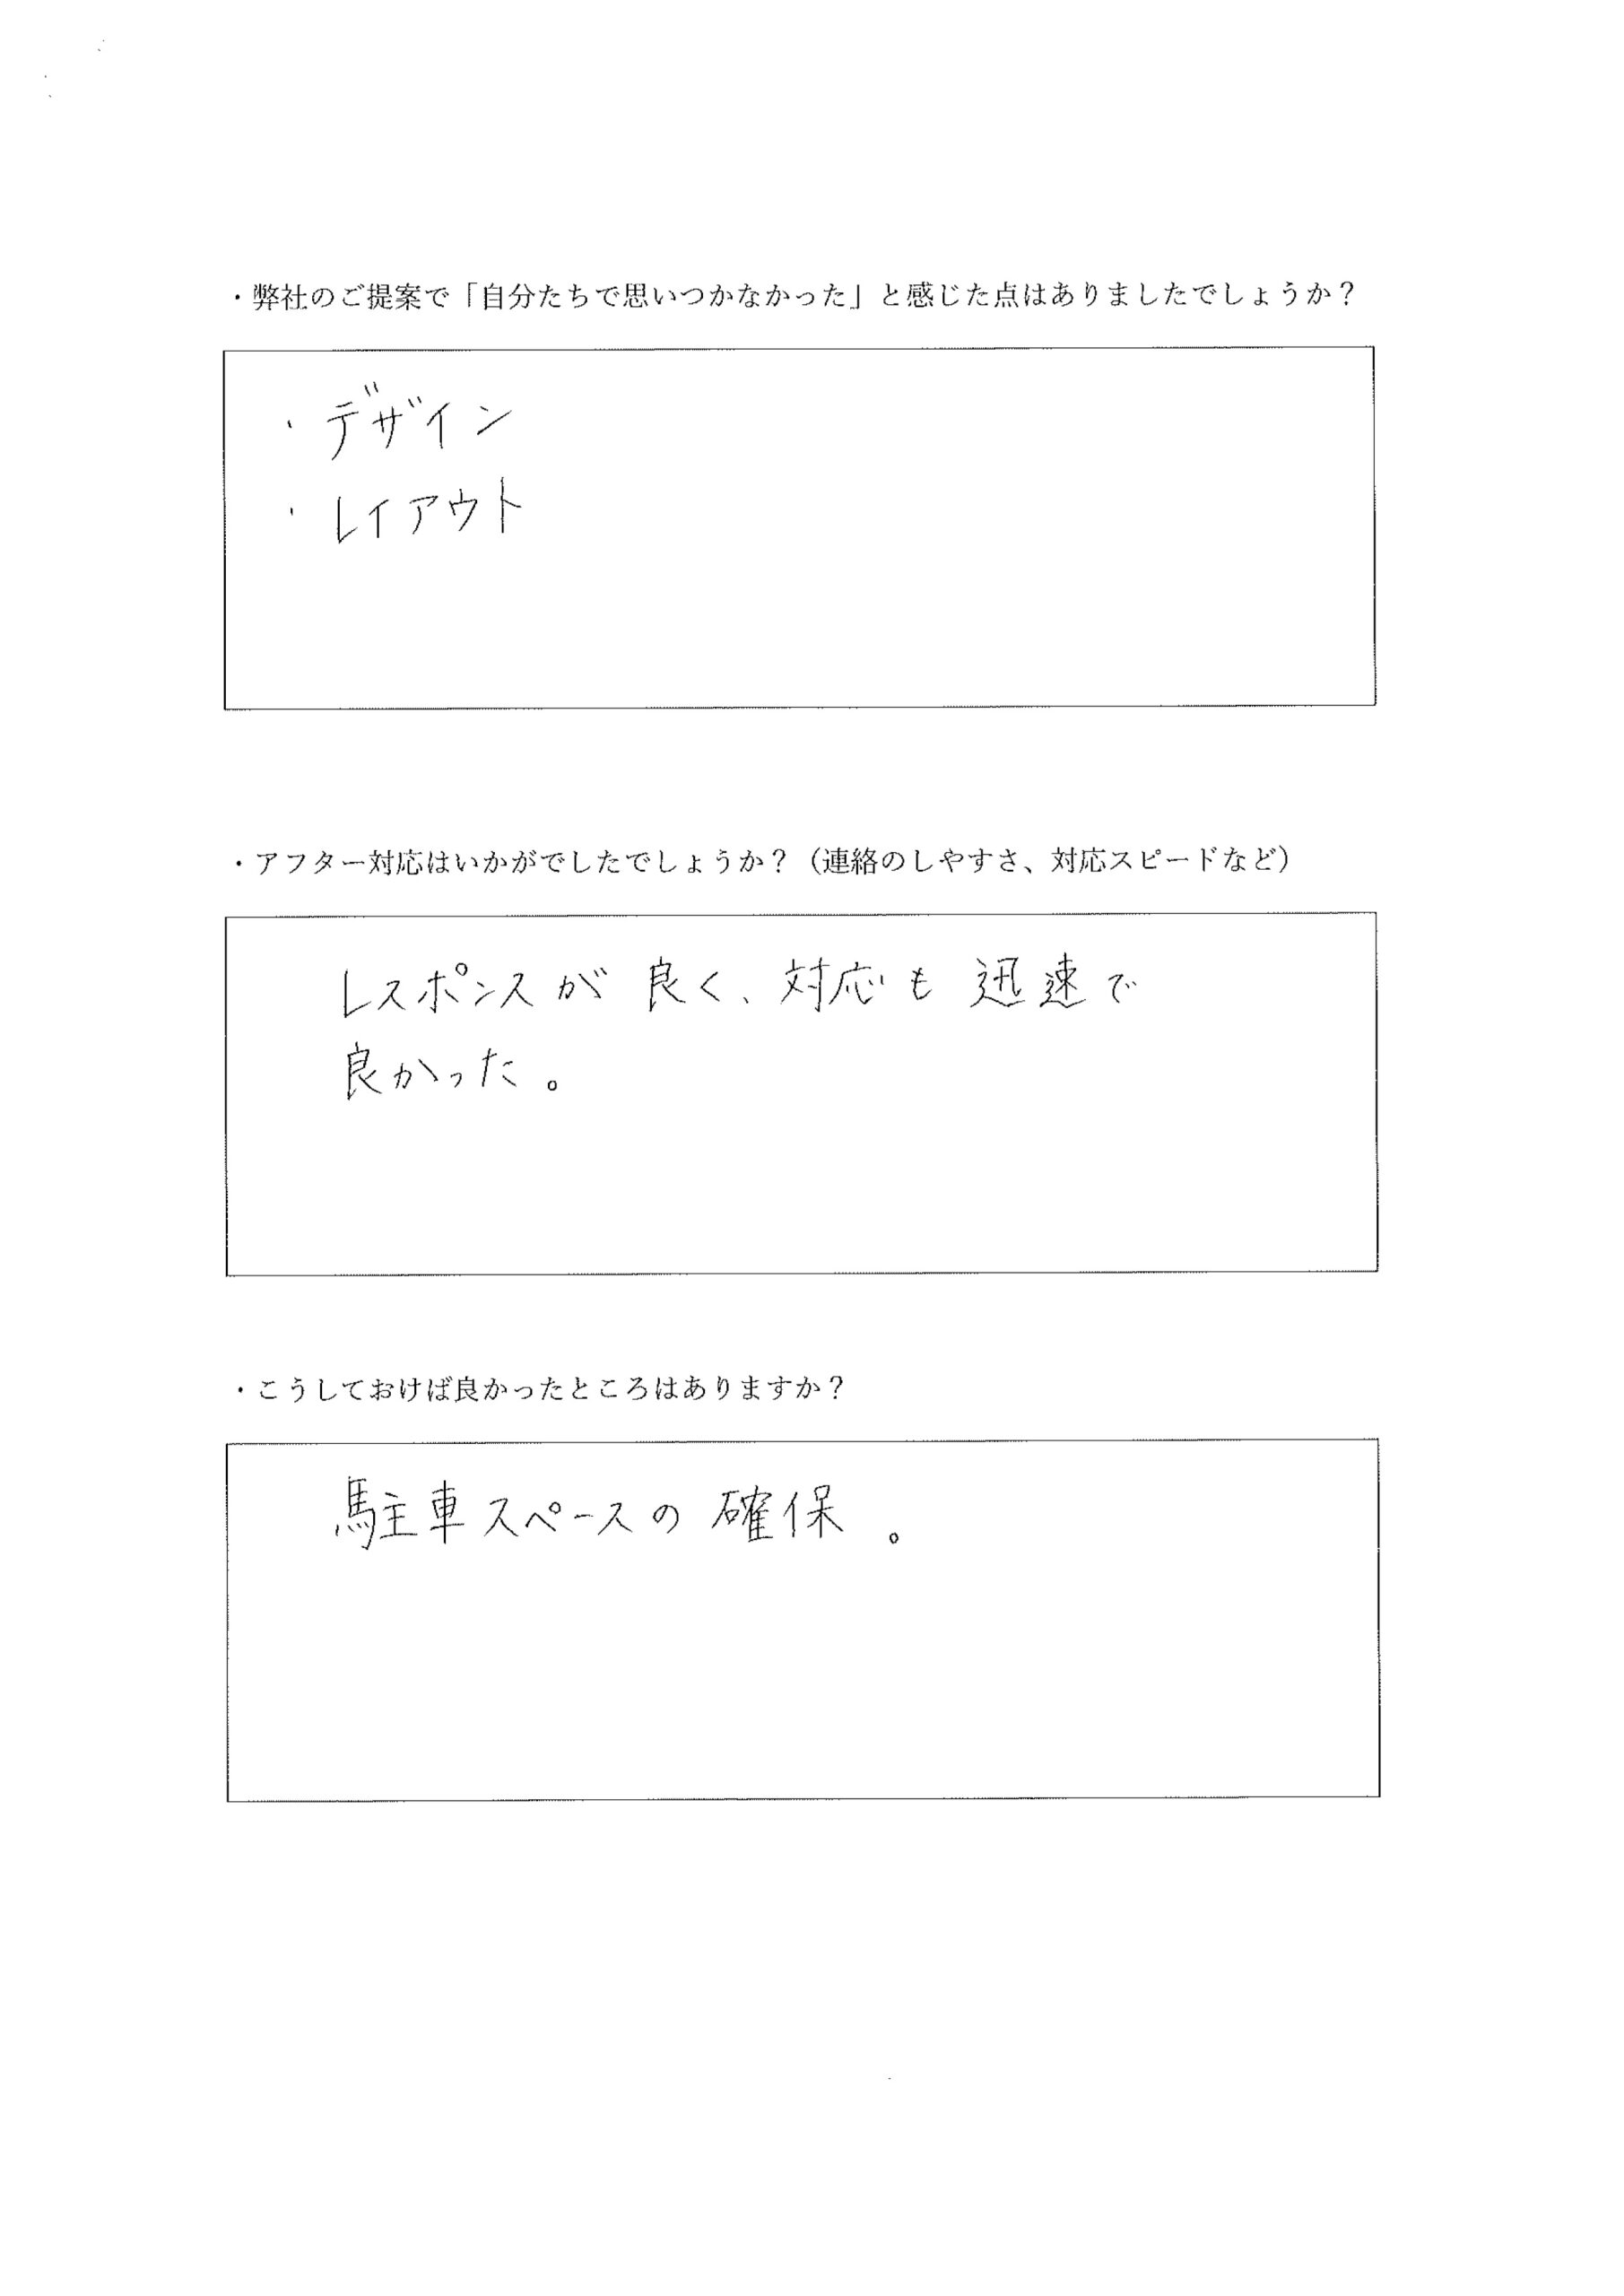 ・弊社のご提案で「自分たちで思いつかなかった」と感じた点はありましたでしょうか？
・デザイン
・レイアウト
・アフター対応はいかがでしたでしょうか？（連絡のしやすさ、対応スピードなど）
レスポンスが良く、対応も迅速で
良かった。
・こうしておけば良かったところはありますか？
駐車スペースの確保。